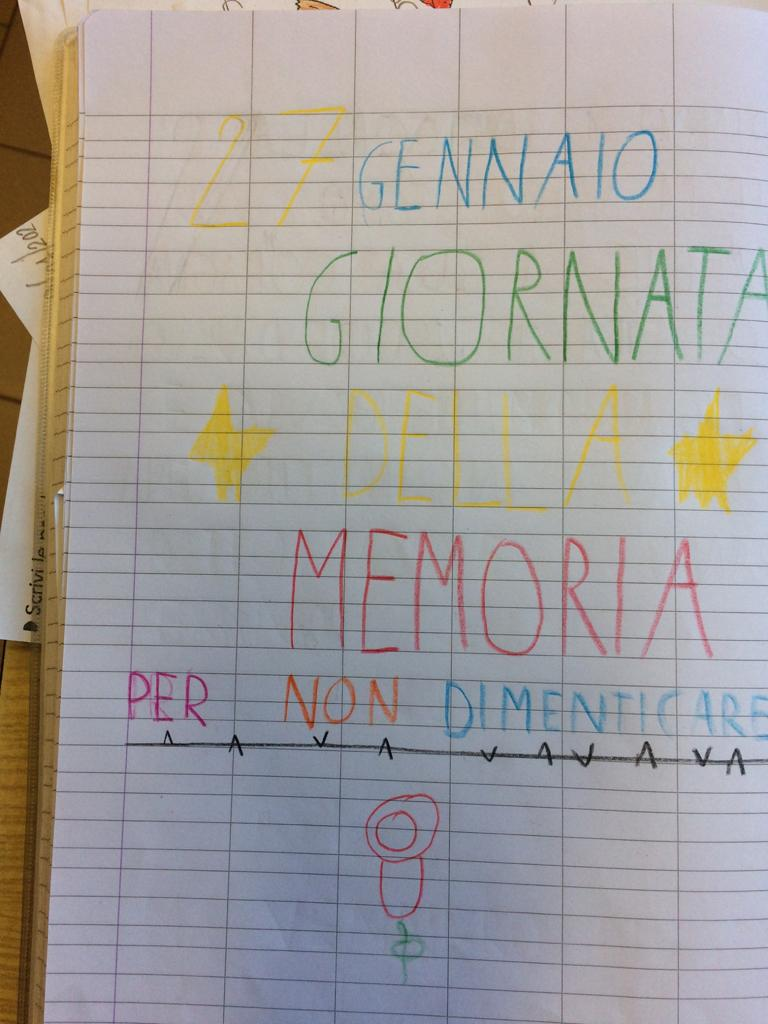 27 GENNAIO
GIORNATA
DELLA
MEMORIA
PER NON DIMENTICARE
Scrivi